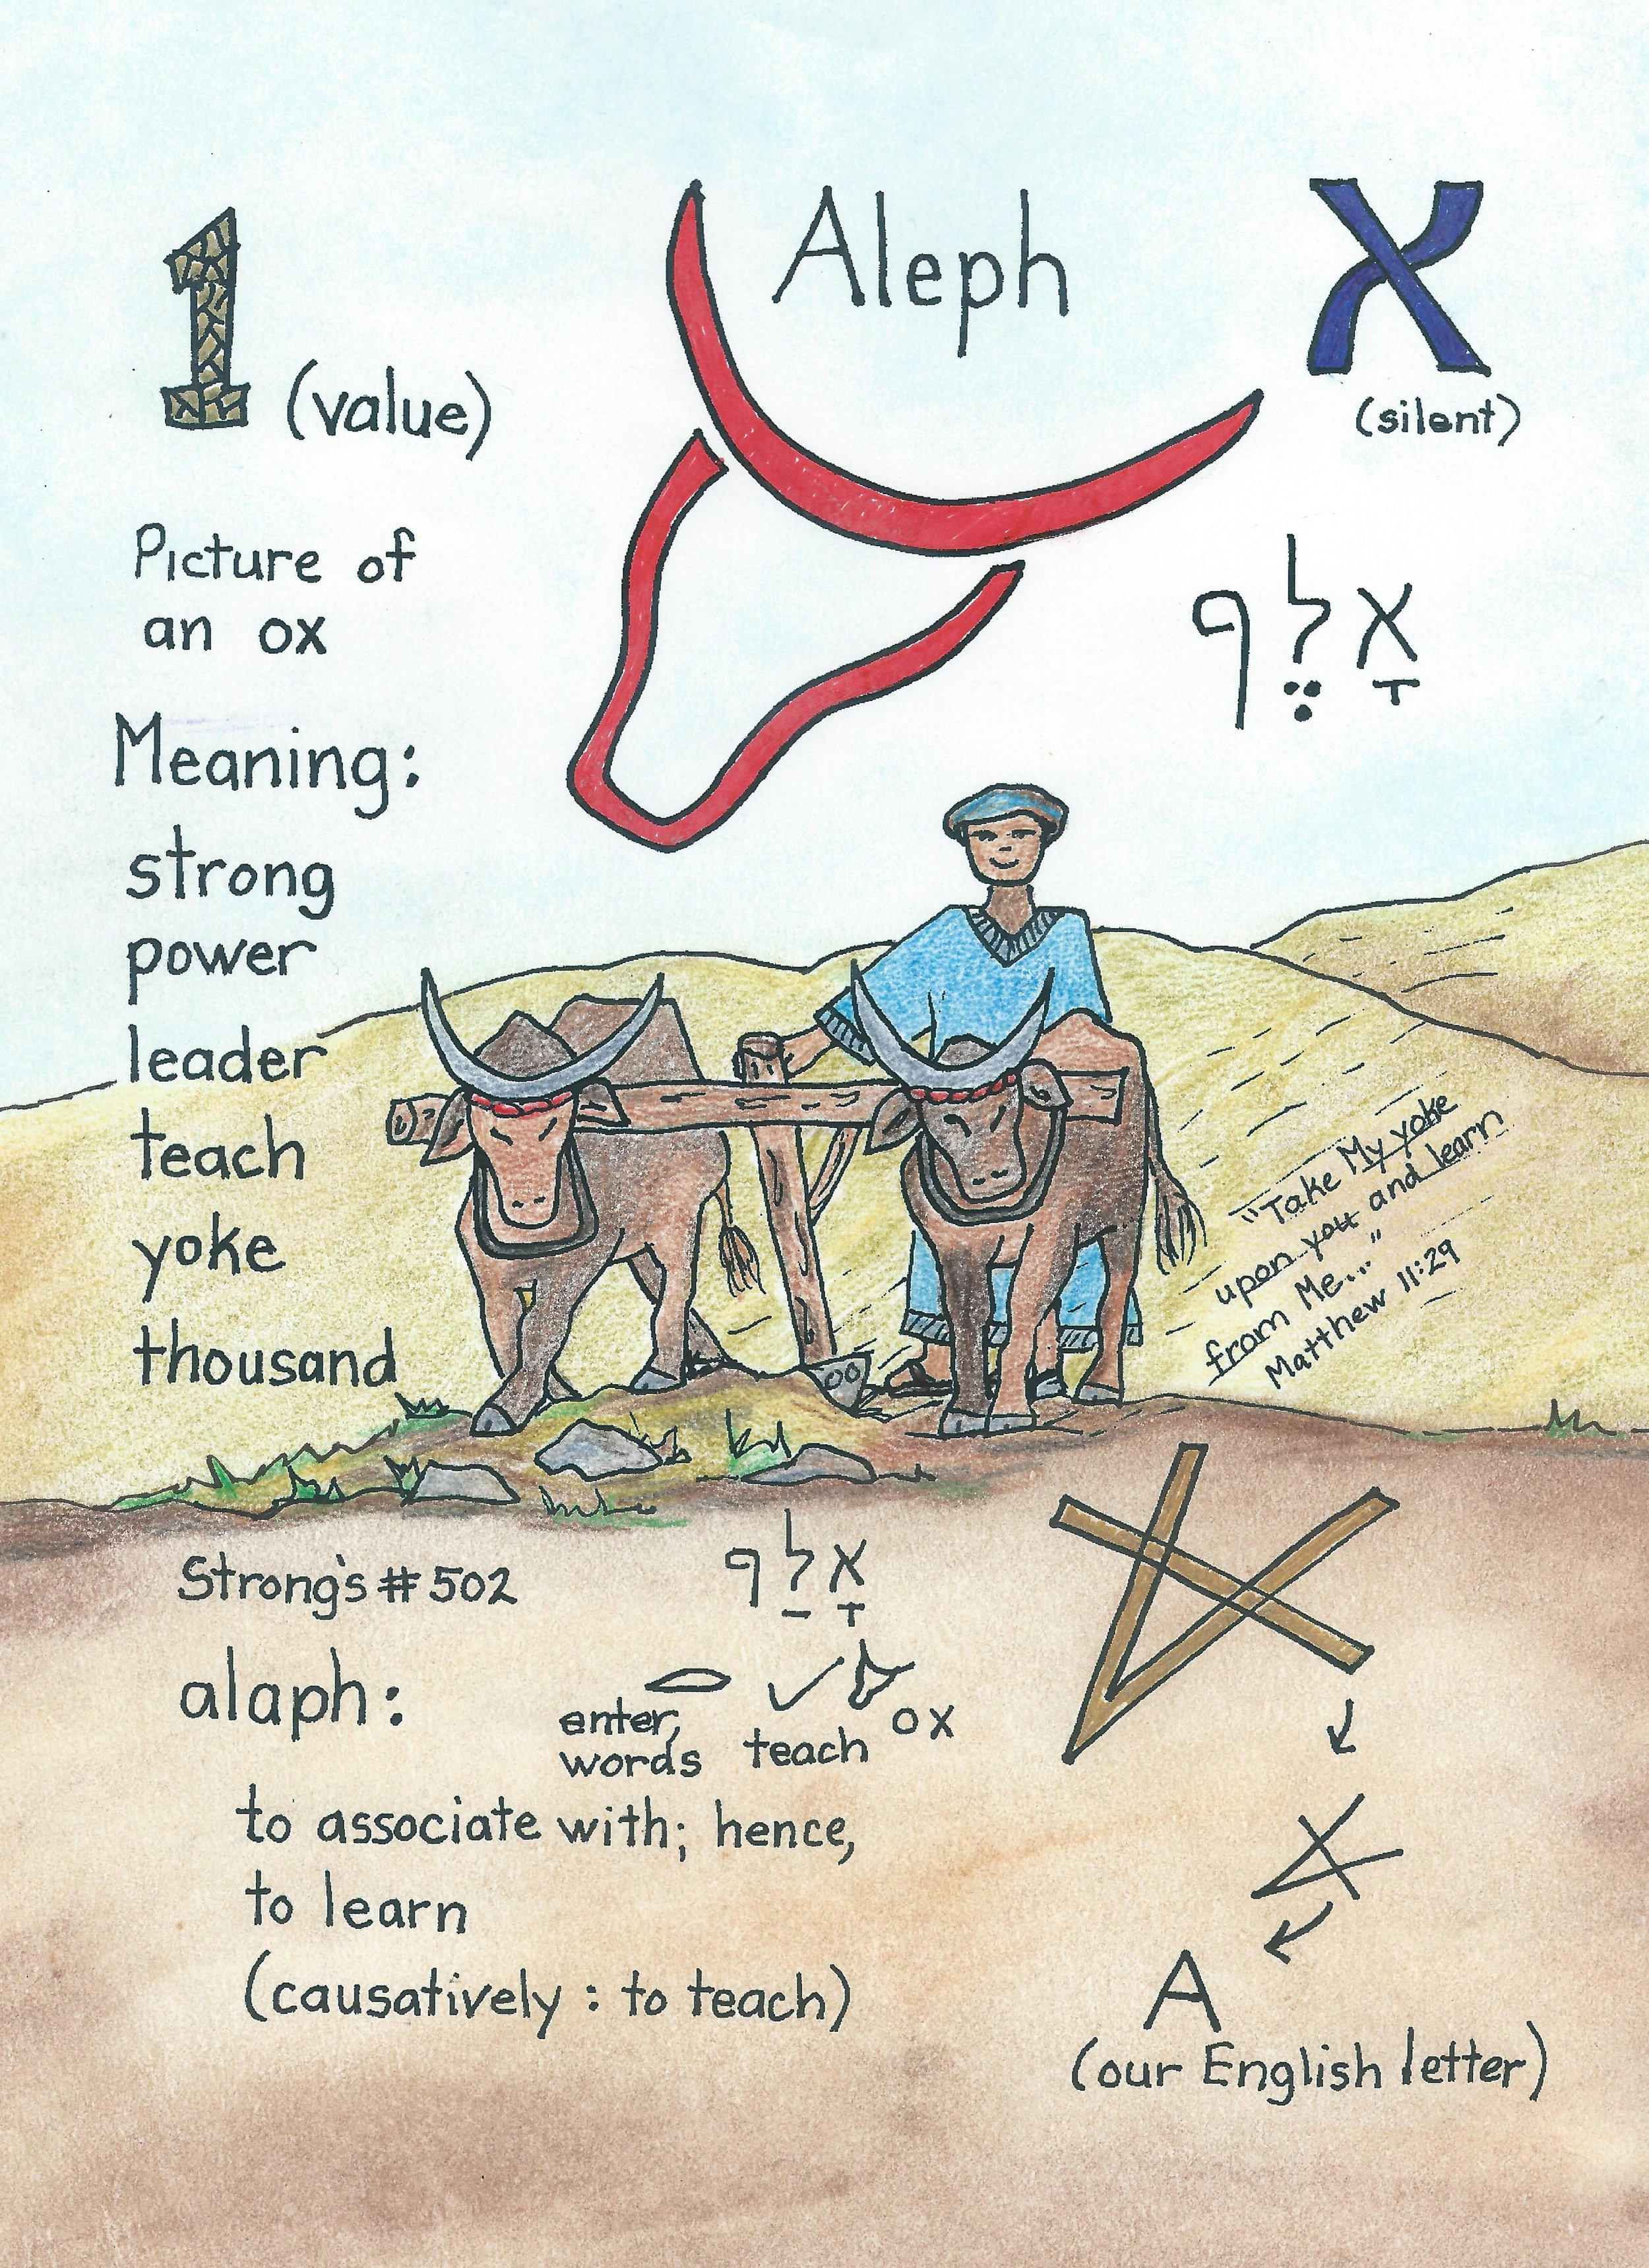 1 (value)
Aleph
א
(silent)
Picture of
an ox
אָלֶף
Meaning:
strong
power
leader
teach
yoke
thousand
"Take My yoke
upon you and learn
from Me..."
Matthew 11:29
Strong's # 502
אָלַף
alaph:
enter,
words
teach
ox
to associate with; hence,
to learn
(causatively: to teach)
A
(our English letter)